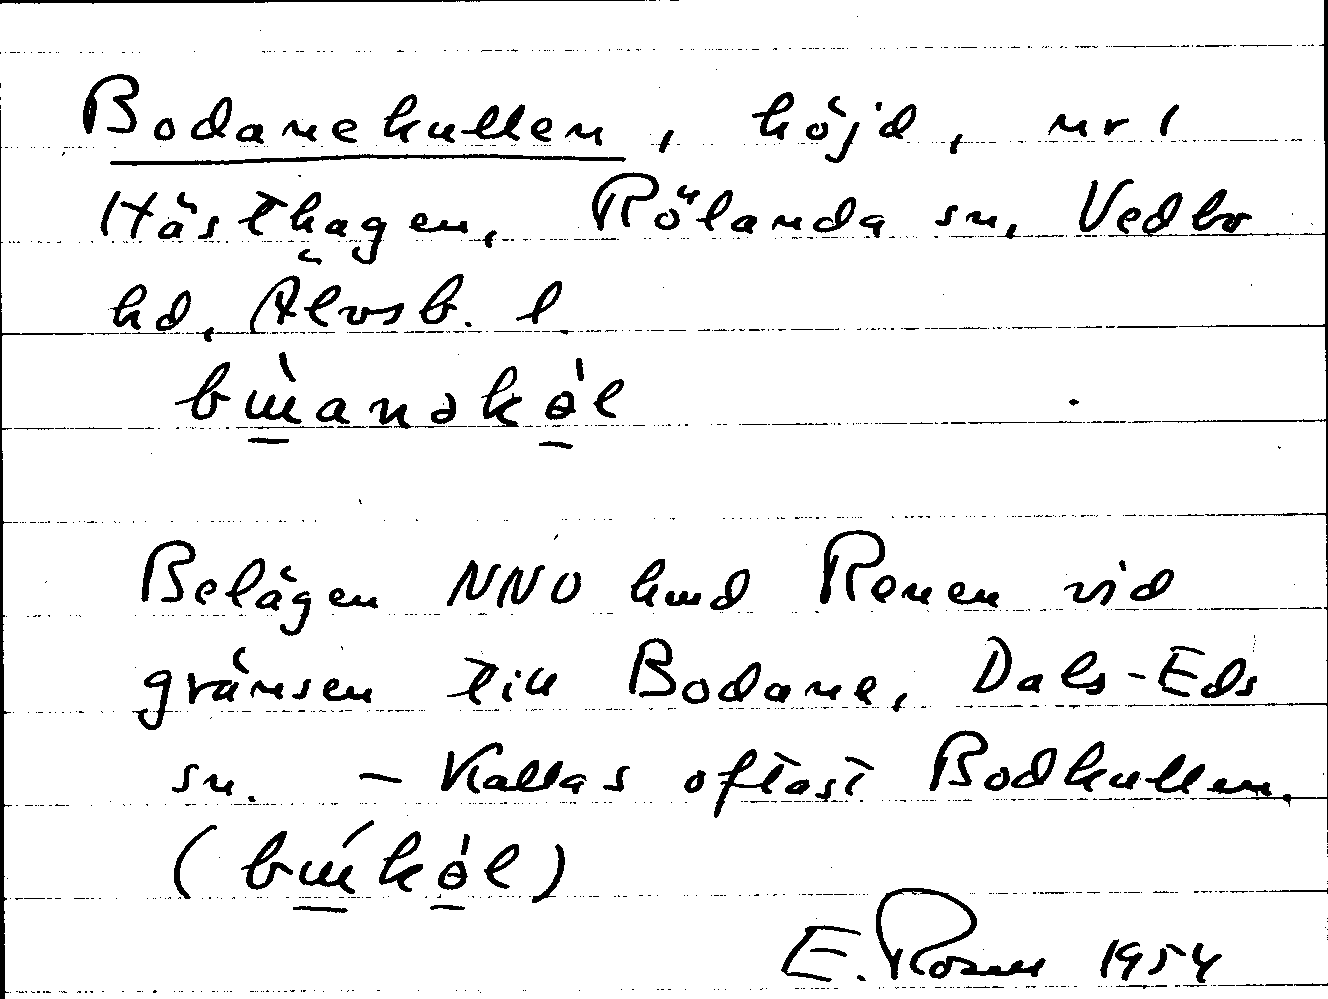 Bodanekullen, höjd, nr 1
Hästhagen, Rölanda sn, Vedbo
hd, Älvsb. l
Belägen NNO hmd Renen vid
gränsen till Bodane, Dals-Eds
sn. – Kallas oftast Bodkullen.
E. 1954